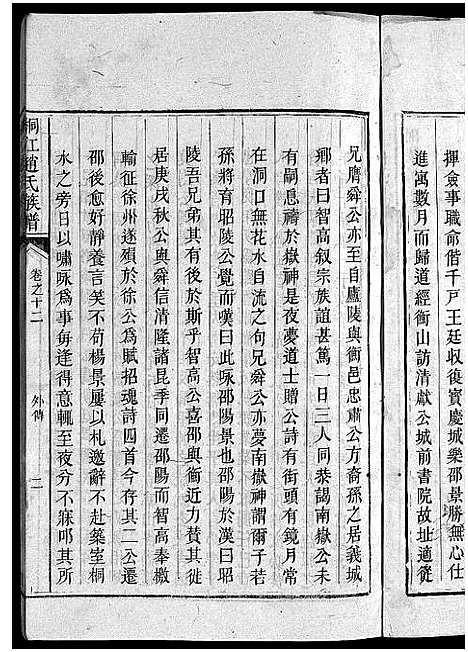 揮僉事職命偕千戸王廷収復寳慶城樂邵景勝無心仕
進寓數月而歸道經衡山訪清獻公城前書院故址適從
兄膺舜公亦至自廬陵與衡邑忠肅公方裔孫之居義城
鄉者曰智高叙宗族誼甚篤一日三人同恭謁南嶽公未
有嗣息禱於嶽神是夜夢道士贈公詩有街頭有鏡月常
在洞口無花水自流之句兄舜公亦夢南嶽神謂爾子若
孫將育昭陵公覺而嘆曰此咏邵陽景也邵陽於漢曰昭
陵吾兄弟其有後於斯乎智高公喜邵與衡近力贊其徙
居庚戌秋公與舜信清隆諸昆季同遷邵陽而智高奉檄
輸征徐州遂殞於徐公為賦招魂詩四首今存其二公遷
邵後愈好靜養言笑不苟楊景屢以札邀辭不赴築室桐
水之旁日以嘯咏為事每逢得意輒至夜分不寐叩其所
桐江趙氏族譜
卷之十二
外傳
二